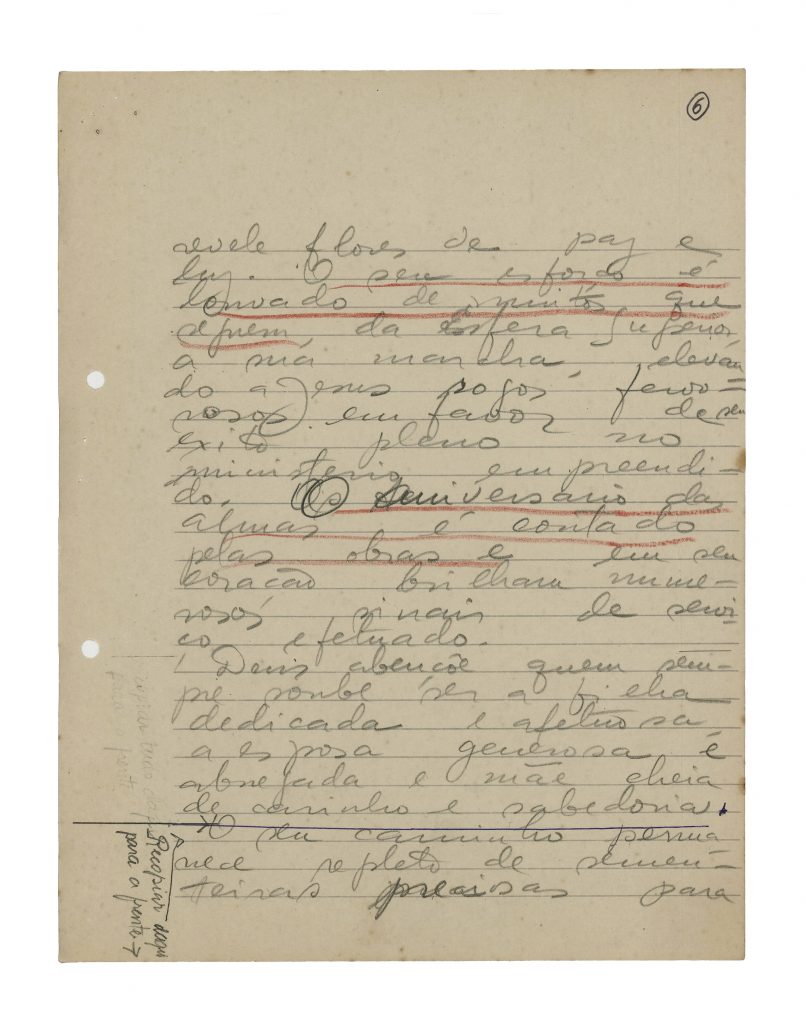 6
revele flores de paz e
luz. O seu esforço é
louvado de muitos que
seguem, da Esfera Superior
a sua marcha, elevan
do a Jesus rogos fervo=
rosos em favor de seu
exito pleno no
ministerio empreendi-
do. O aniversario das
almas é contado
pelas obras e em seu
coração brilham nume-
rosos sinais de servi-
ço efetuado.
Deus abençõe quem sem-
pre soube ser a filha
dedicada e afetuosa
a esposa generosa e
abnegada e mãe cheia
de carinho e sabedoria.
O seu caminho perma
nece repleto de semen-
teiras preciosas para
Recopiar daqui
para a frente →